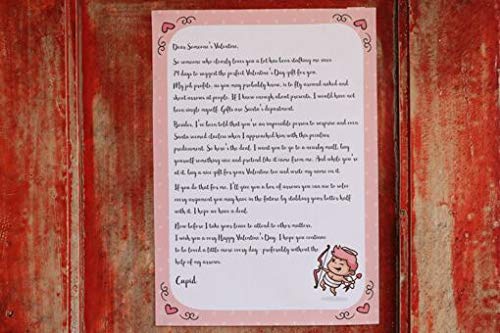 Dear Someone's Valentine,
So someone who clearly loves you a lot has been stalking me since
29 days to suggest the perfect Valentine's Day gift for you.
My job profile, as you may probably know, is to fly around naked and
shoot arrows at people. If I knew enough about presents, I would have not
been single myself. Gifts are Santa's department.
Besides, I've been told that you're an impossible person to surprise and even
Santa seemed clueless when I approached him with this peculiar
predicament. So here's the deal. I want you to go to a nearby mall, buy
yourself something nice and pretend like it came from me. And while you're
at it, buy a nice gift for your Valentine too and write my name on it.
If you do that for me, I'll give you a box of arrows you can use to solve
any argument you may have in the future by stabbing your better half
with it. I hope we have a deal.
Now before I take your leave to attend to other matters,
I wish you a very Happy Valentine's Day. I hope you continue
to be loved a little more every day -preferably without the
help of my arrows.
Cupid